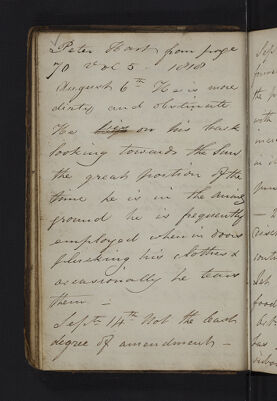 Peter Hart from page
70 vol 5 - 1818
August 6th He is more
dirty and obstinate
He lies on his back
looking towards the Sun
the great portion of the
time he is in the airing
ground he is frequently
employed when in doors
plucking his clothes &
occasionally he tears
them -
Septr 14th Not the least
degree of amendment -